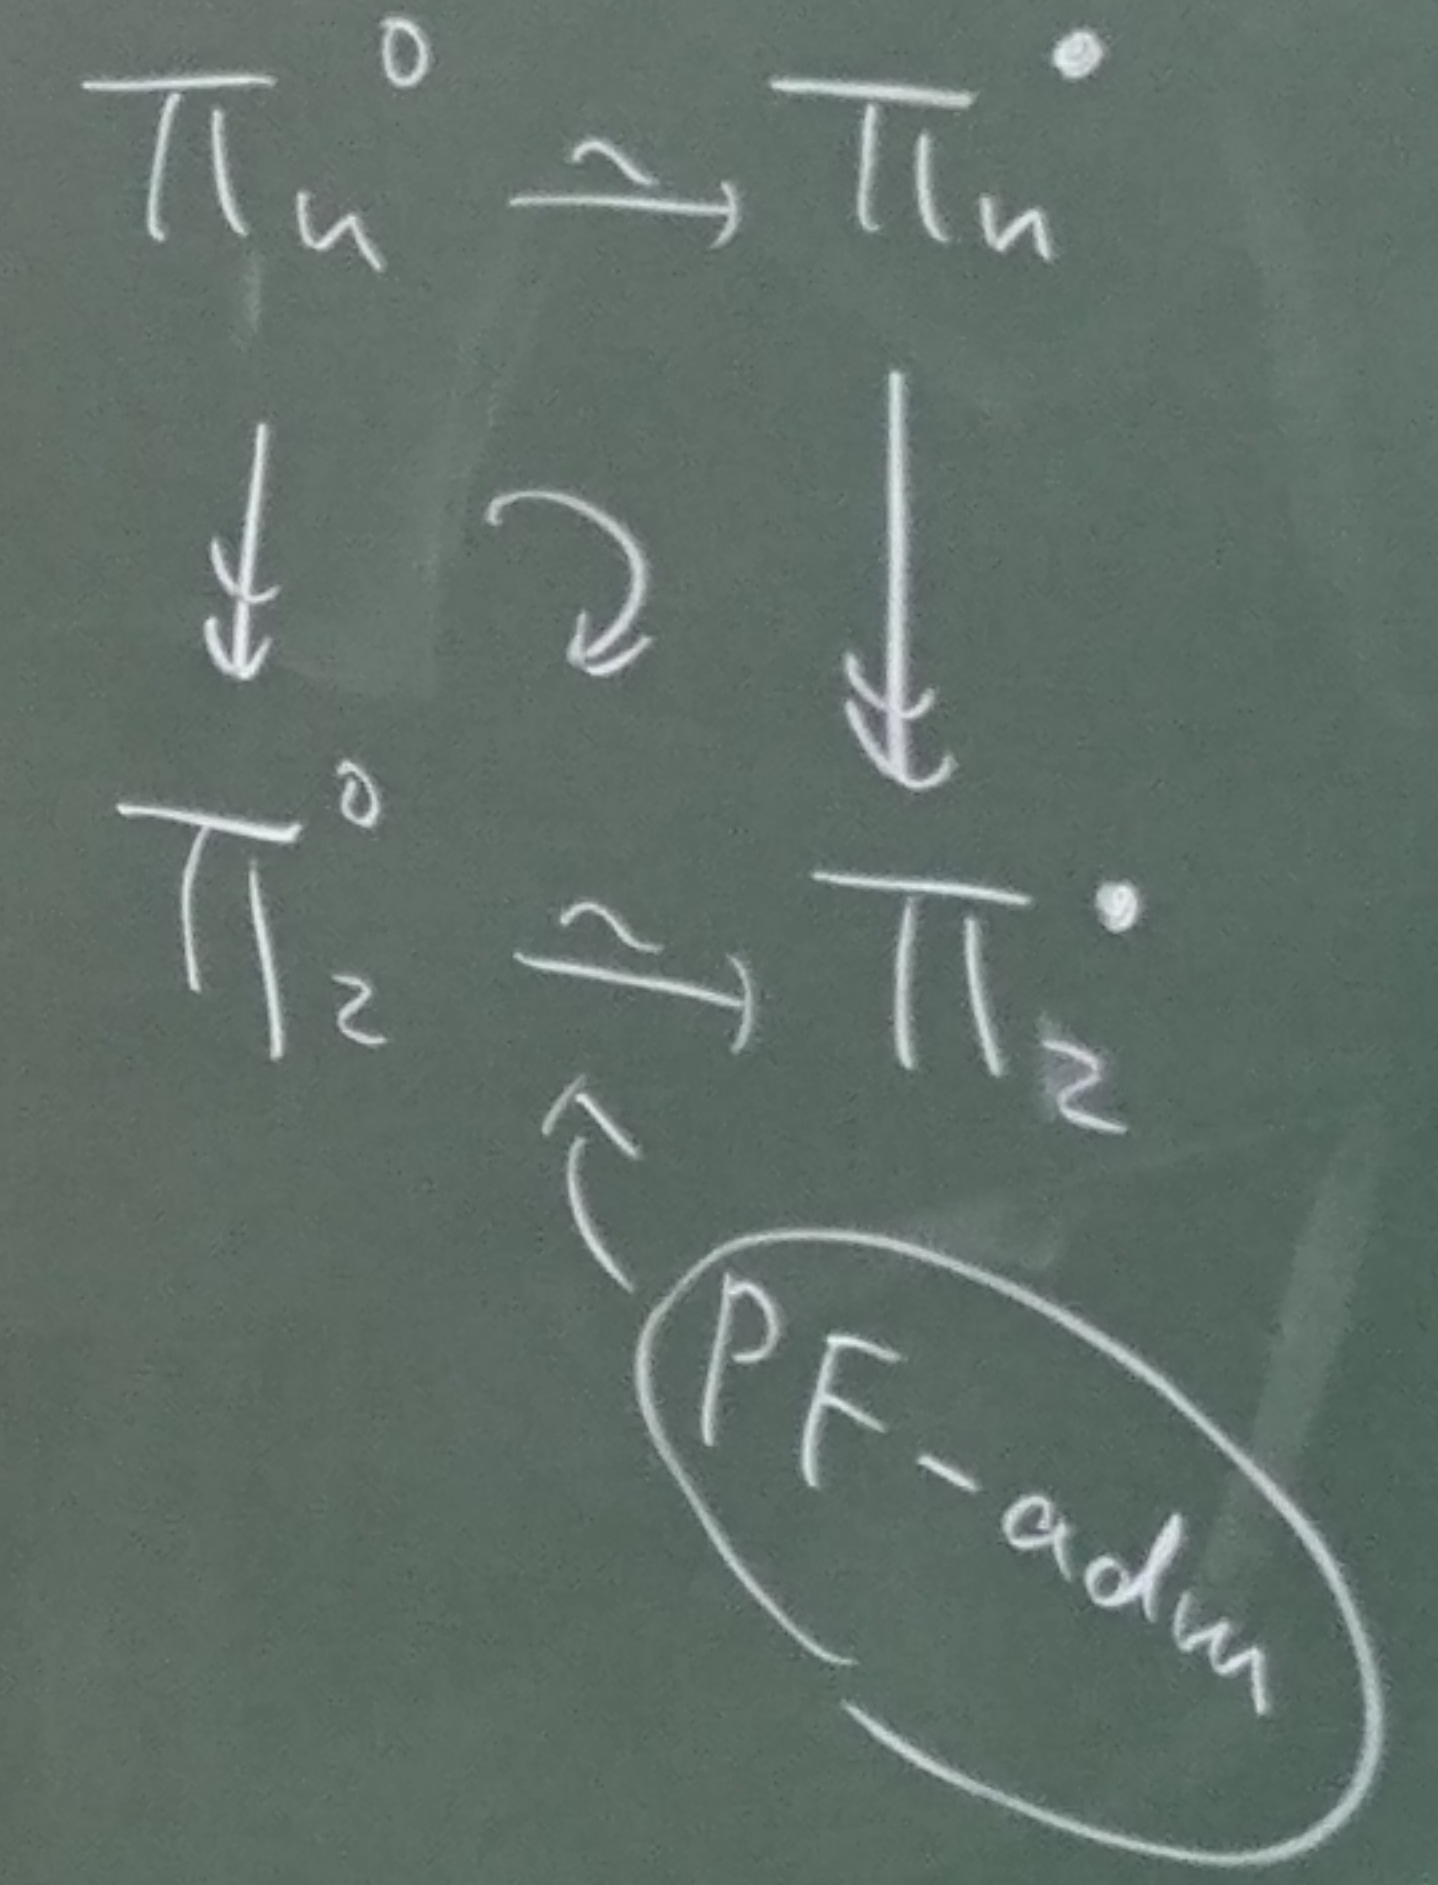 Π_n^○ ⥲ Π_n^●
↠ ↷ ↠
Π_2^○ ⥲ Π_2^●
PF-adm